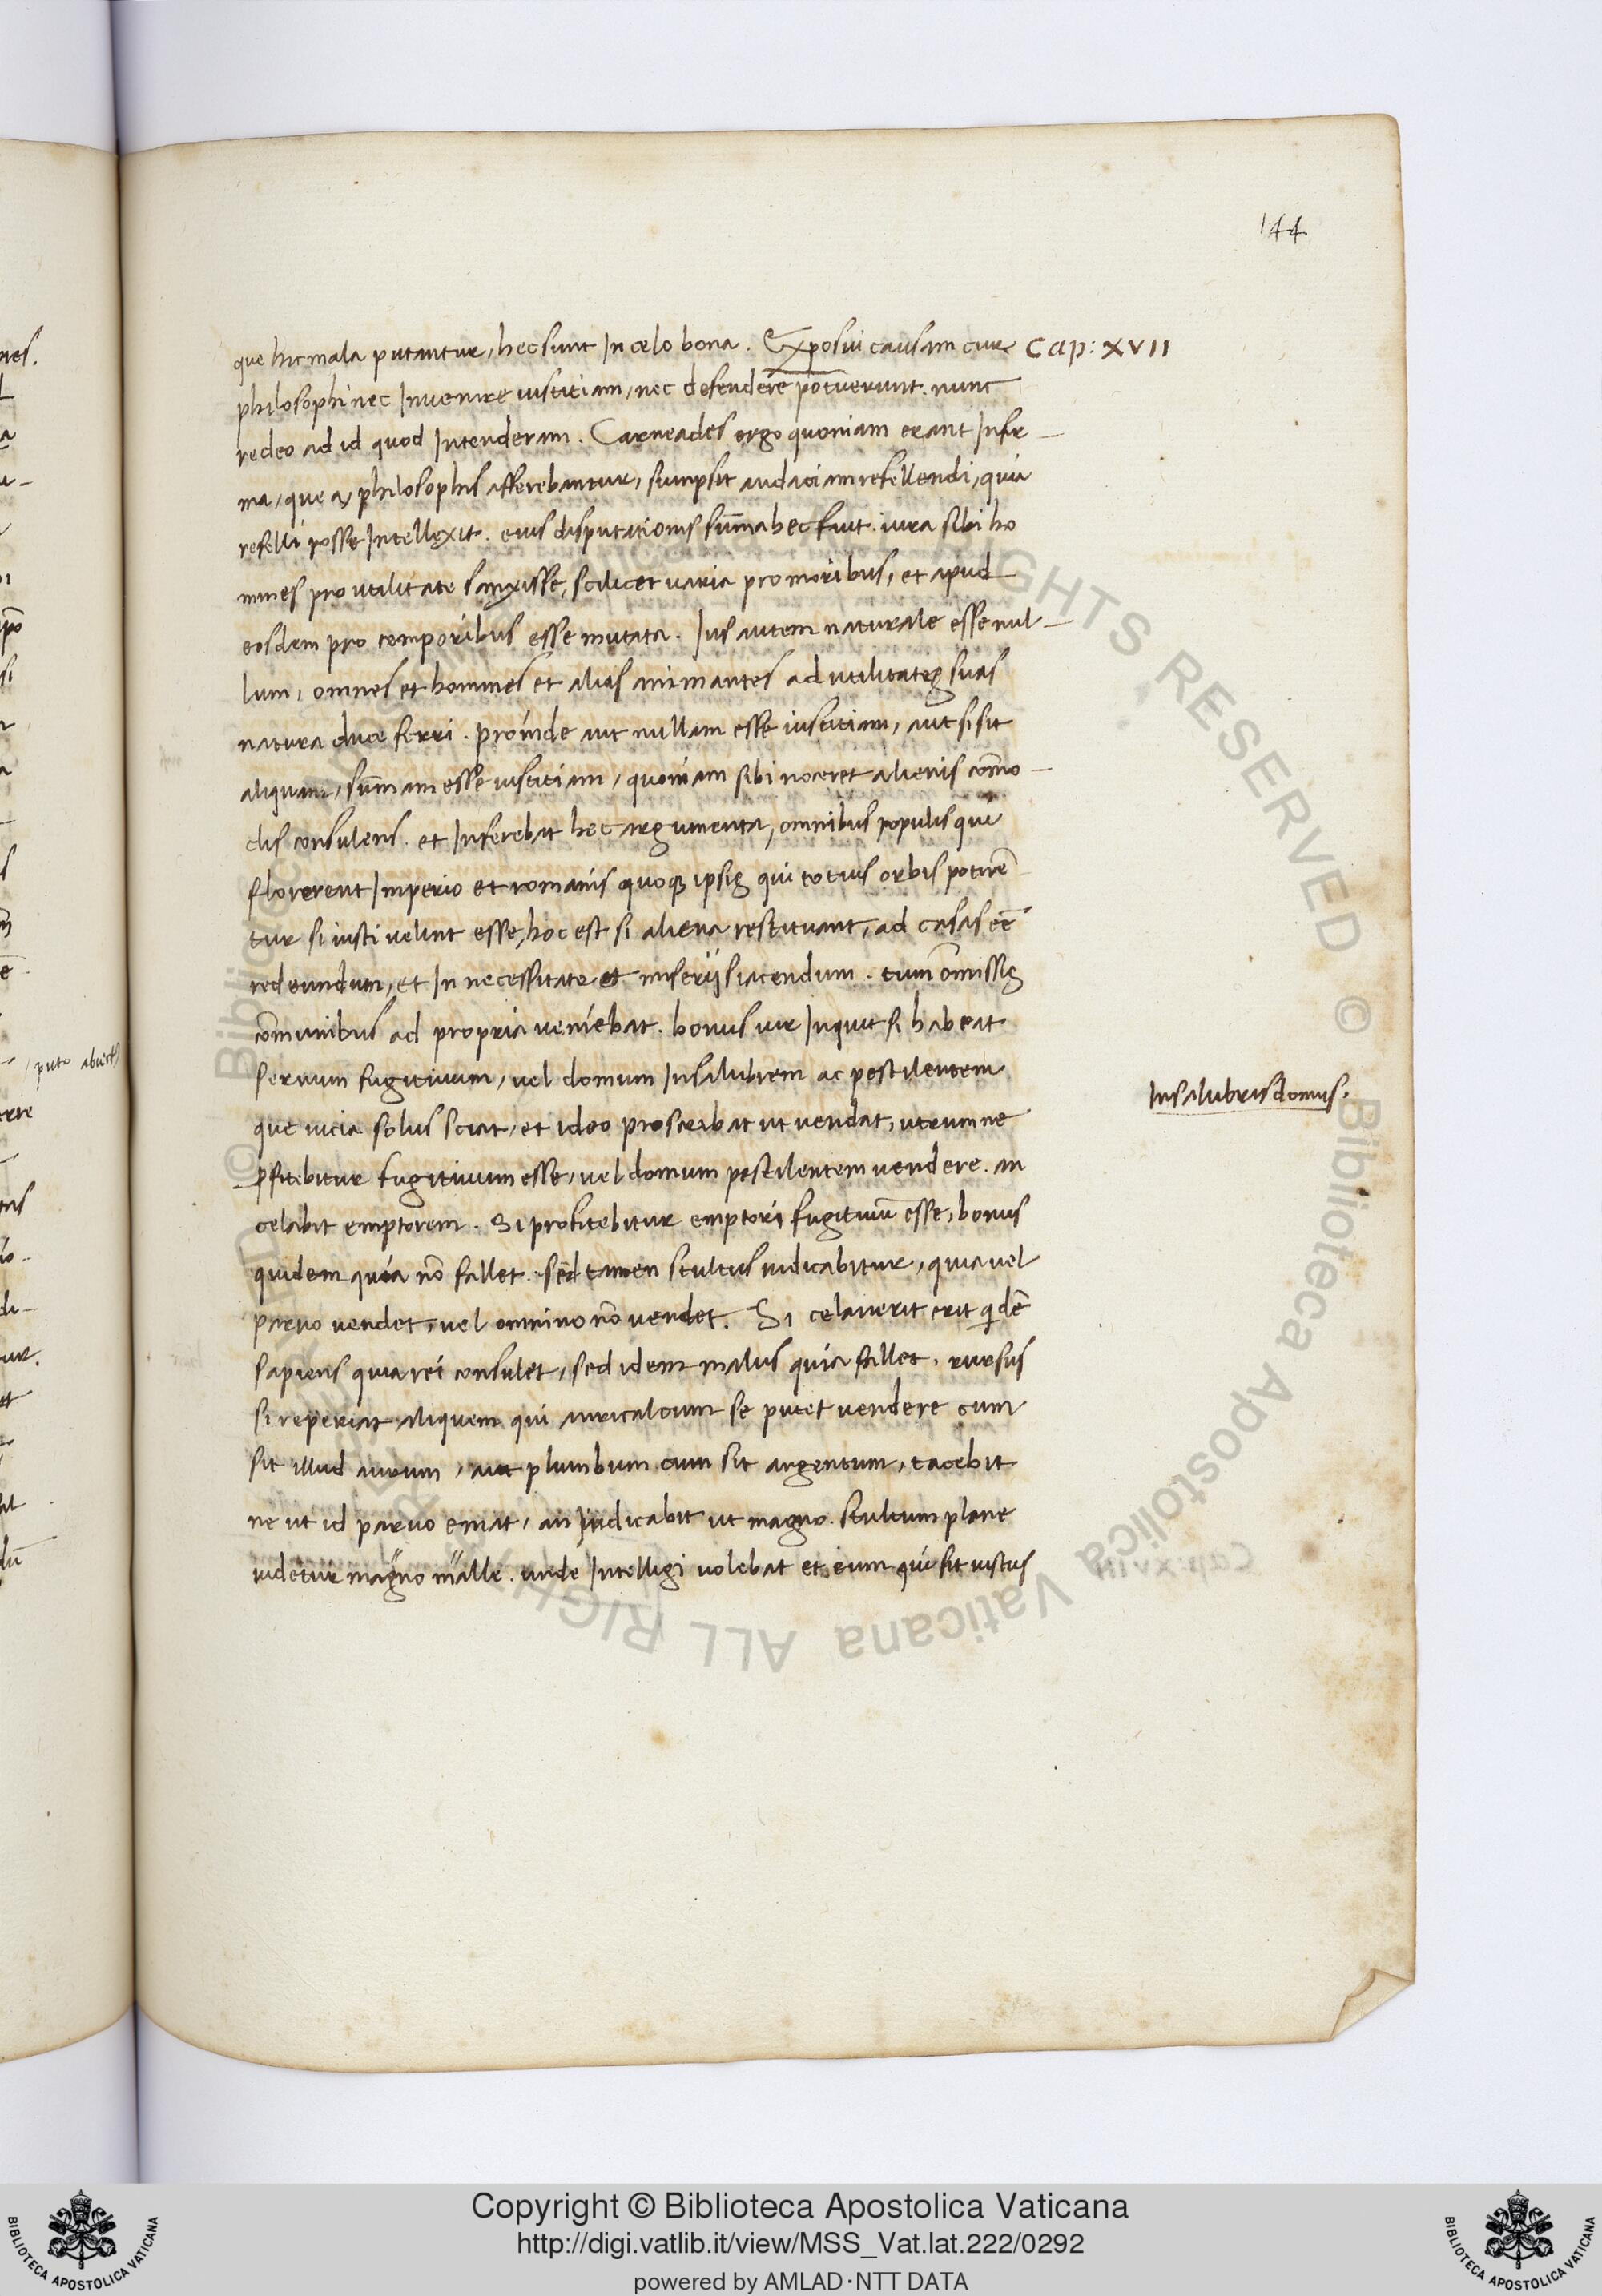 144
que hic mala putantur, hec sunt In celo bona. Exposui causam cur Cap: XVII
philosophi nec Inuenire iusticiam, nec defendere potuerunt. nunc
redeo ad id quod Intenderam. Carneades ergo quoniam erant Infir-
ma, que a philosophis afferebantur, sumpsit audaciam refellendi, quia
refelli posse Intellexit. eius disputationis sum̄a hec fuit. iura sibi ho
mines pro utilitate sanxisse, scilicet uaria pro moribus, et apud
eosdem pro temporibus esse mutata. Ius autem naturale esse nul-
lum, omnes et homines et alias animantes ad utilitates suas
natura duce ferri. proinde aut nullam esse iusticiam, aut si sit
aliquam, sum̄am esse iusticiam, quoniam sibi noceret alienis com̄o-
dis consulens. et Inferebat hec argumenta, omnibus populis qui
florerent Imperio et romanis quoq; ipsis qui totius orbis potirē
tur si iusti uelint esse, hoc est si aliena restituant, ad casas eē
redeundum, et In necessitate et miseriis iacendum. tum omissis
com̄unibus ad propria ueniebat. bonus uir Inquit si habeat
seruum fugitiuum, uel domum Insalubrem ac pestilentem
Insalubris domus.
que uicia solus sciat, et ideo proscribat ut uendat, utrumne
p̱fitebitur fugitiuum esse, uel domum pestilentem uendere. an
celabit emptorem. Si profitebitur emptori fugitiuū esse, bonus
quidem quia nō fallet. sed tamen stultus iudicabitur, quia uel
paruo uendet, uel omnino nō uendet. Si celauerit erit qidē
sapiens quia rei consulet, sed idem malus quia fallet. rursus
si reperiat aliquem qui auricalcum se putet uendere cum
sit illud aurum, aut plumbum cum sit argentum, tacebit
ne ut id paruo emat, an Iudicabit ut magno. stultum plane
uidetur magno malle. unde Intelligi uolebat et eum qui sit iustus
Copyright © Biblioteca Apostolica Vaticana
http://digi.vatlib.it/view/MSS_Vat.lat.222/0292
powered by AMLAD·NTT DATA